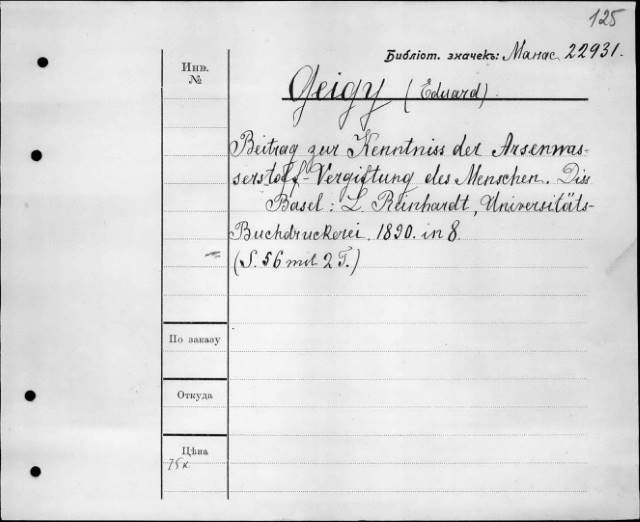 125
Библіот. значекъ: Манас 22931.
Инв.
№
Geigy (Eduard).
Beitrag zur Kenntniss der Arsenwas-
serstoff-Vergiftung des Menschen. Diss
Basel: L. Reinhardt, Universitäts-
Buchdruckerei. 1890. in 8.
(S. 56 mit 2 T.)
По заказу
Откуда
Цѣна
75к